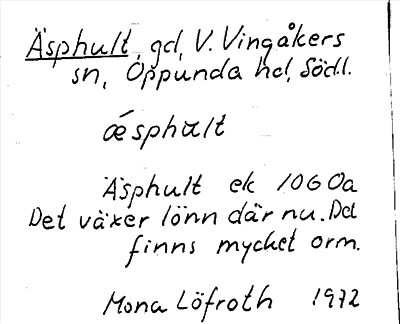 Äsphult, gd, V. Vingåkers
sn, Oppunda hd, Södl.
ǽsphult
Äsphult ek 10G Oa
Det växer lönn där nu. Det
finns mycket orm.
Mona Löfroth 1972